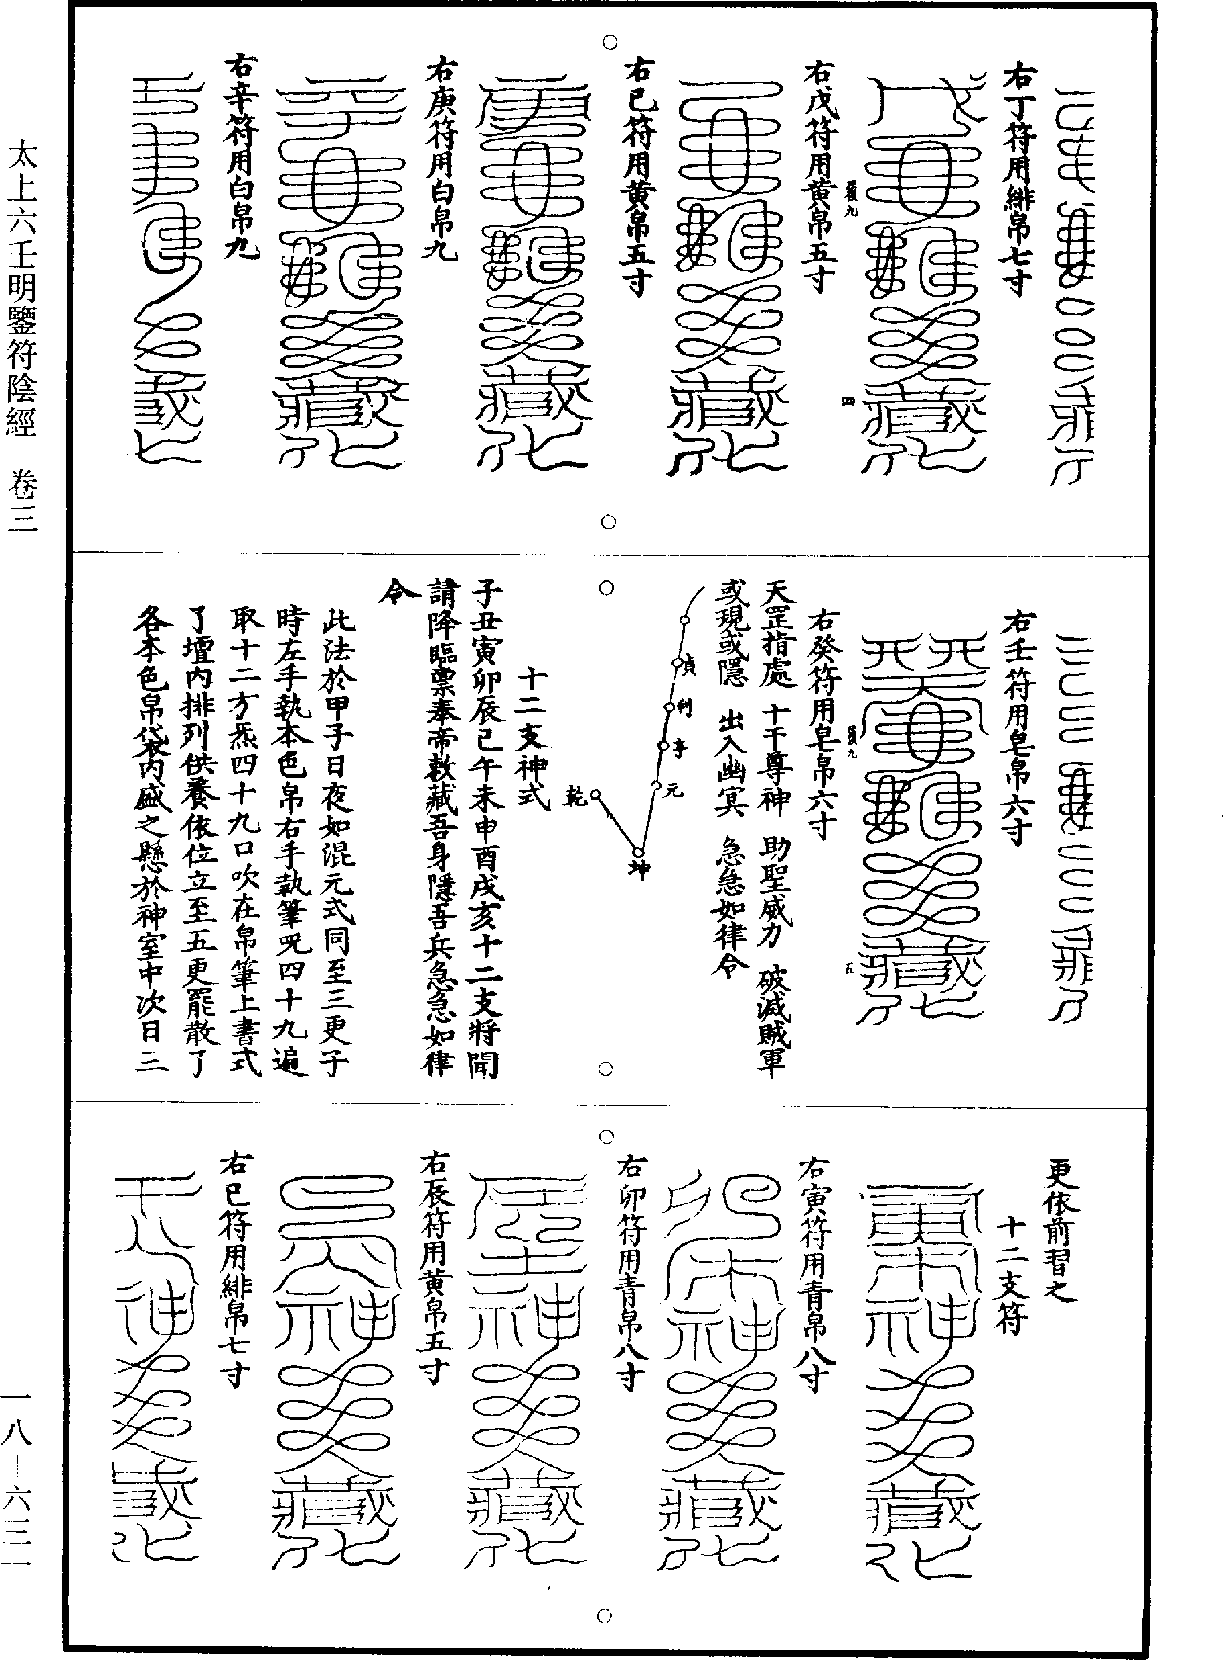 右丁符用緋帛七寸
右戊符用黃帛五寸
右己符用黃帛五寸
右庚符用白帛九
右辛符用白帛九
右壬符用皂帛六寸
右癸符用皂帛六寸
天罡指處　十干尊神　助聖威力　破滅賊軍
或現或隱　出入幽冥　急急如律令
貞
利
亨
元
坤
乾
十二支神式
子丑寅卯辰巳午未申酉戌亥十二支將聞
請降臨稟奉帝敕藏吾身隱吾兵急急如律
令
此法於甲子日夜如混元式同至三更子
時左手執本色帛右手執筆咒四十九遍
取十二方炁四十九口吹在帛筆上書式
了壇內排列供養依位立至五更罷散了
各本色帛袋內盛之懸於神室中次日三
更依前習之
十二支符
右寅符用青帛八寸
右卯符用青帛八寸
右辰符用黃帛五寸
右巳符用緋帛七寸
太上六壬明鑒符陰經　卷三
一八—六三二